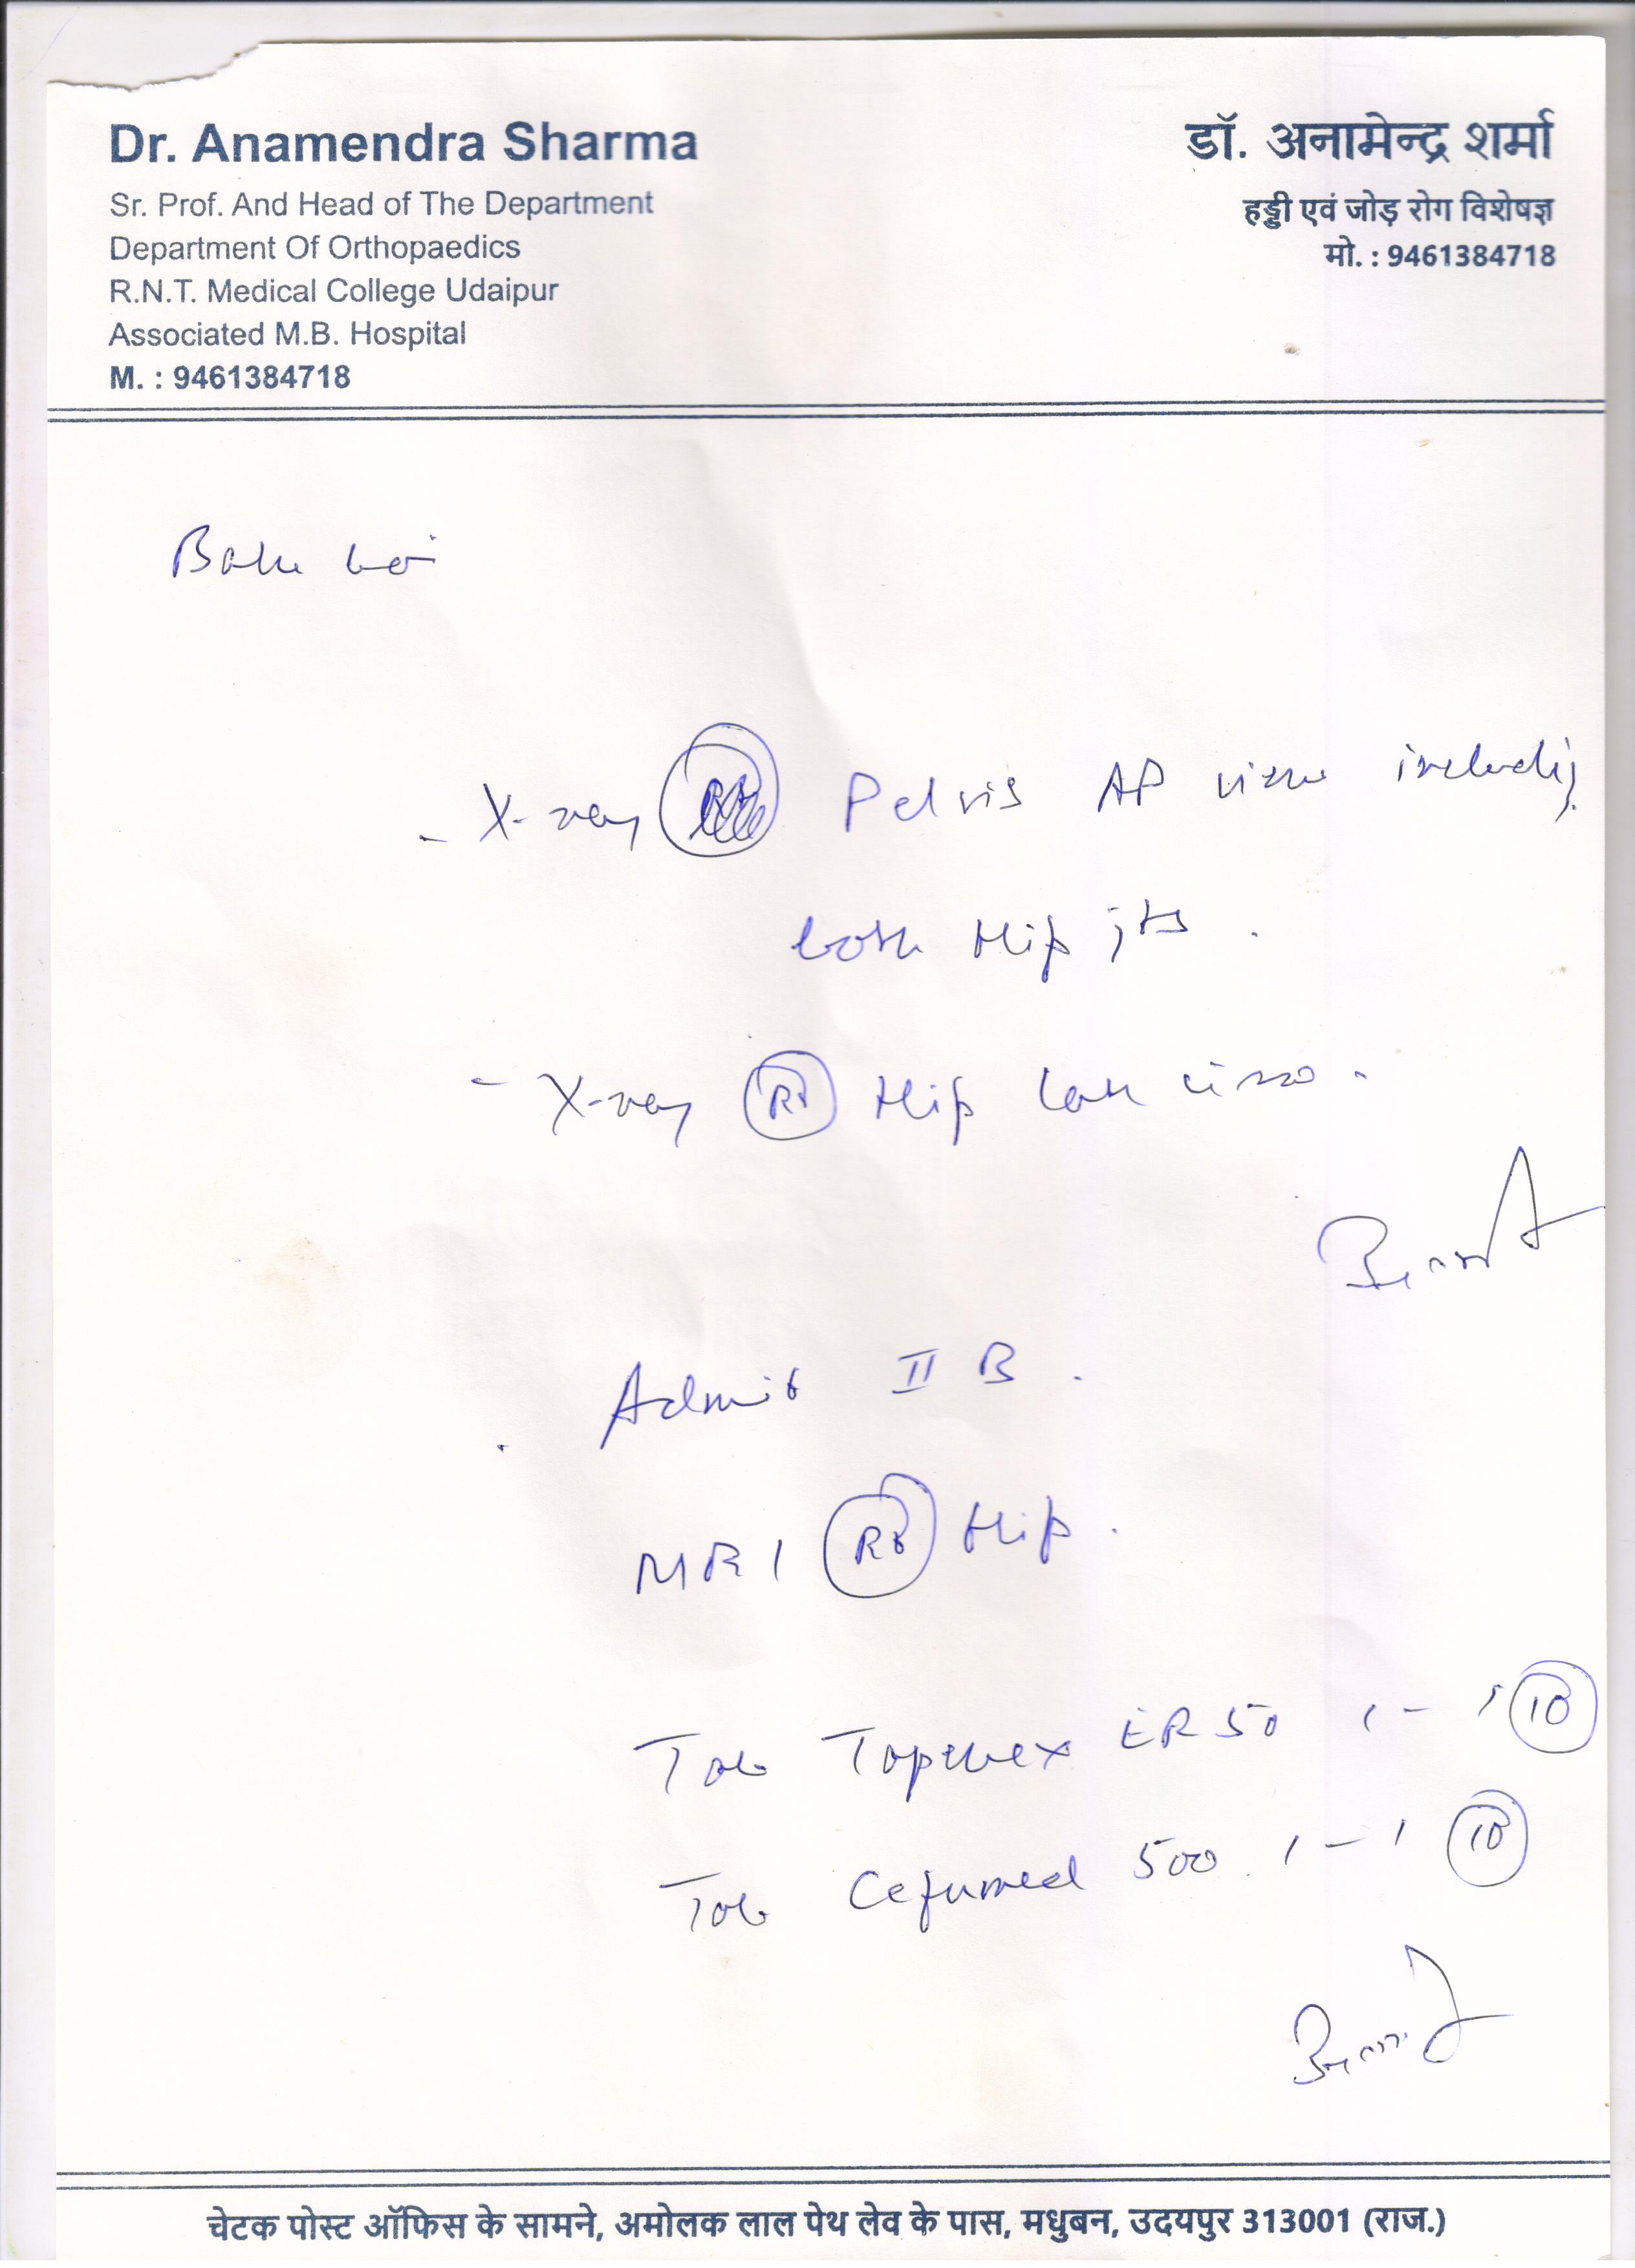 Dr. Anamendra Sharma
Sr. Prof. And Head of The Department
Department Of Orthopaedics
R.N.T. Medical College Udaipur
Associated M.B. Hospital
M. : 9461384718
डॉ. अनामेन्द्र शर्मा
हड्डी एवं जोड़ रोग विशेषज्ञ
मो. : 9461384718
- X-ray Pelvis AP view including
both Hip jts.
- X-ray Rt Hip view.
Admit II B.
MRI Rt Hip.
Tab ER 50 1 - 1 10
Tab 500 1 - 1 10
चेटक पोस्ट ऑफिस के सामने, अमोलक लाल पेथ लेव के पास, मधुबन, उदयपुर 313001 (राज.)